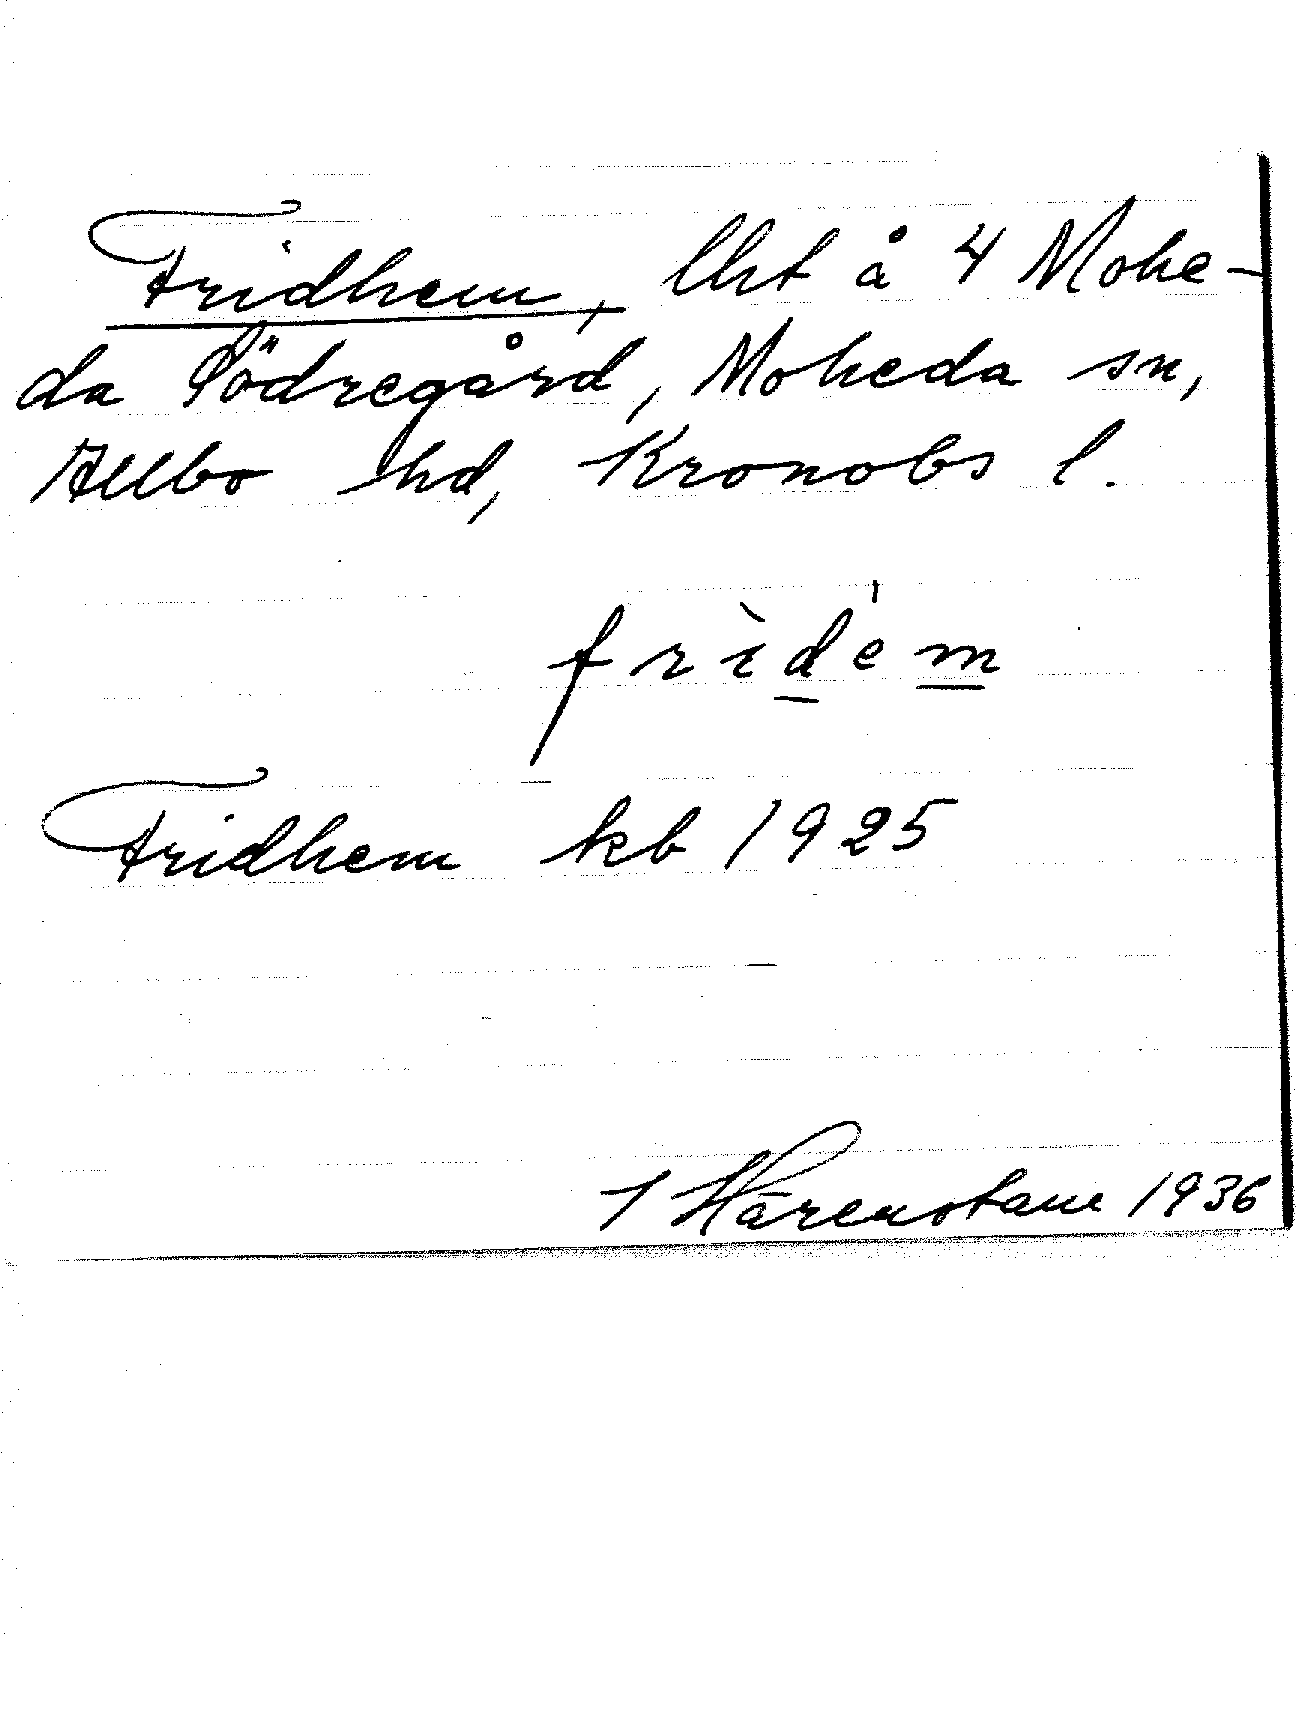 Fridhem, lht å 4 Mohe-
da Södregård, Moheda sn,
Allbo hd, Kronobs l.
frìde̍m
Fridhem kb 1925
I Härenstam 1936